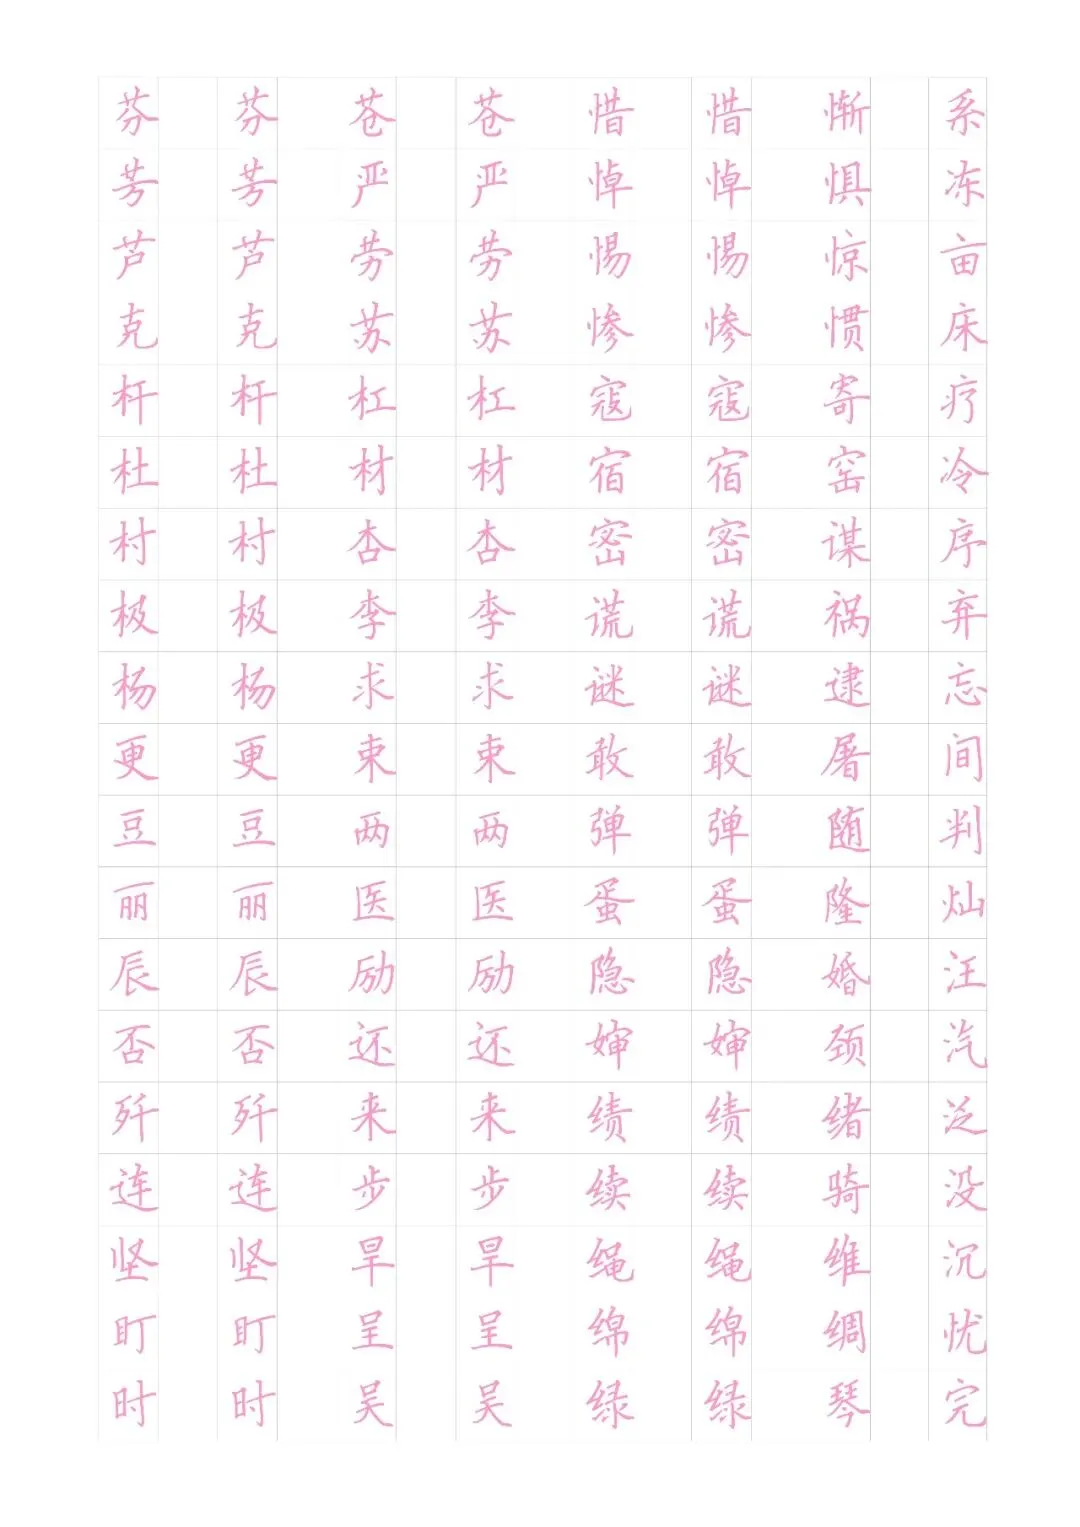 芬 芬 苍 苍 惜 惜 惭 系
芳 芳 严 严 悼 悼 惧 冻
芦 芦 劳 劳 惕 惕 惊 亩
克 克 苏 苏 惨 惨 惯 床
杆 杆 杠 杠 寇 寇 寄 疗
杜 杜 材 材 宿 宿 窑 冷
村 村 杏 杏 密 密 谋 序
极 极 李 李 谎 谎 祸 弃
杨 杨 求 求 谜 谜 逮 忘
更 更 束 束 敢 敢 屠 间
豆 豆 两 两 弹 弹 随 判
丽 丽 医 医 蛋 蛋 隆 灿
辰 辰 励 励 隐 隐 婚 汪
否 否 还 还 婶 婶 颈 汽
歼 歼 来 来 绩 绩 绪 泛
连 连 步 步 续 续 骑 没
坚 坚 旱 旱 绳 绳 维 沉
盯 盯 呈 呈 绵 绵 绸 忧
时 时 吴 吴 绿 绿 琴 完